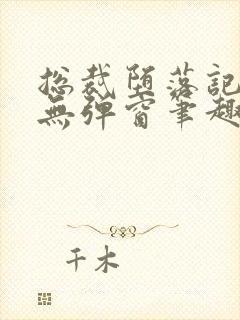 总裁堕落記
無弹窗笔趣
千木